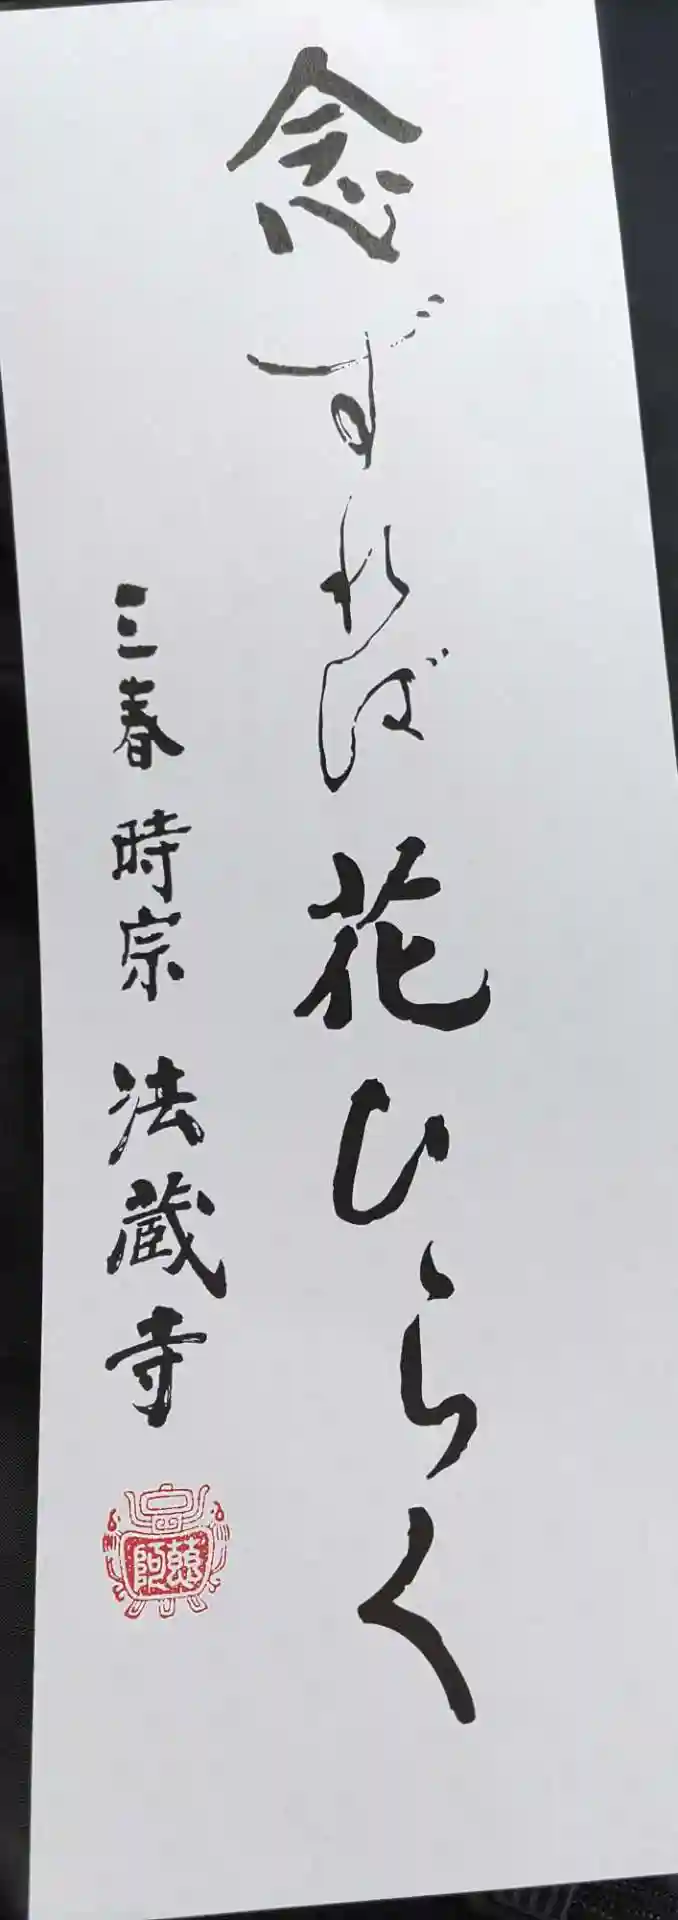 念ずれば花ひらく
三春 時宗 法蔵寺
慈阿